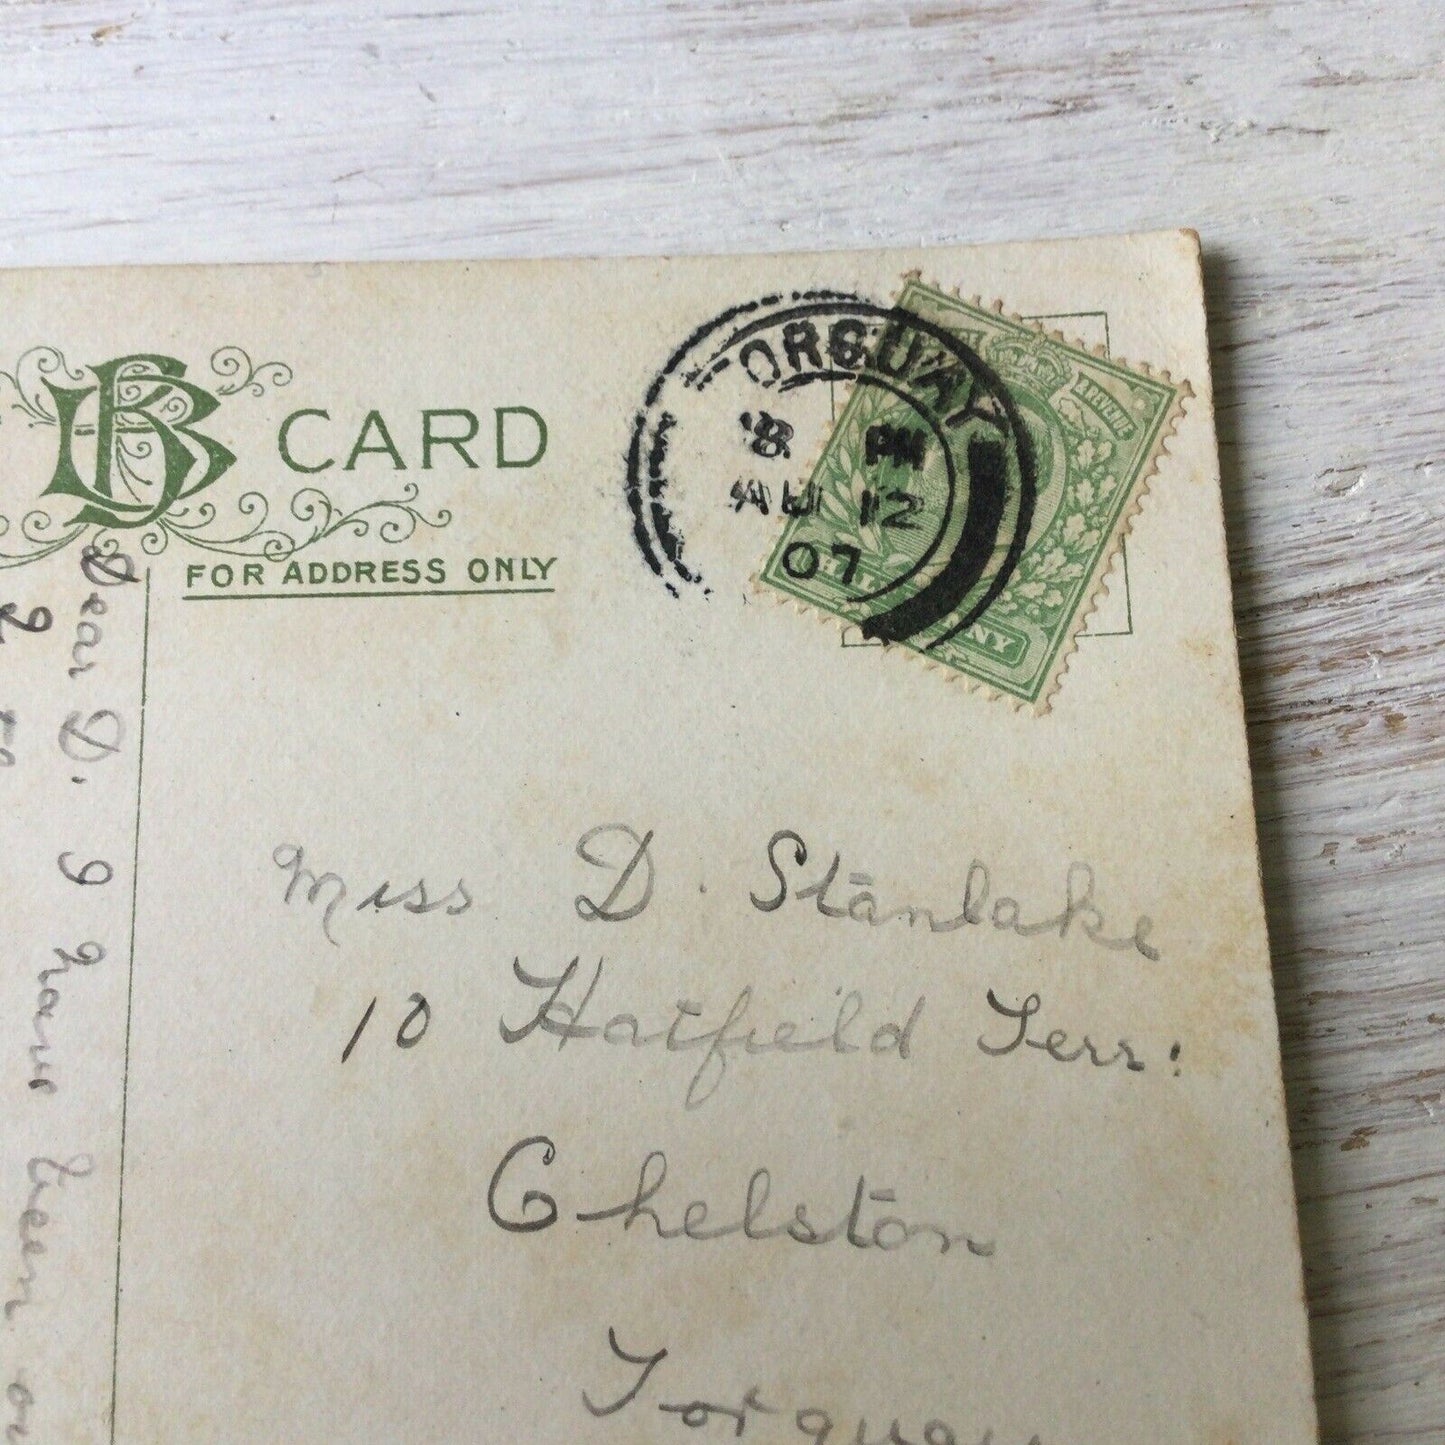 CARD
FOR ADDRESS ONLY
TORQUAY
8 PM
AU 12
07
REVENUE
HALFPENNY
Miss D. Stanlake
10 Hatfield Terr:
Chelston
Torquay
Dear D. I have been